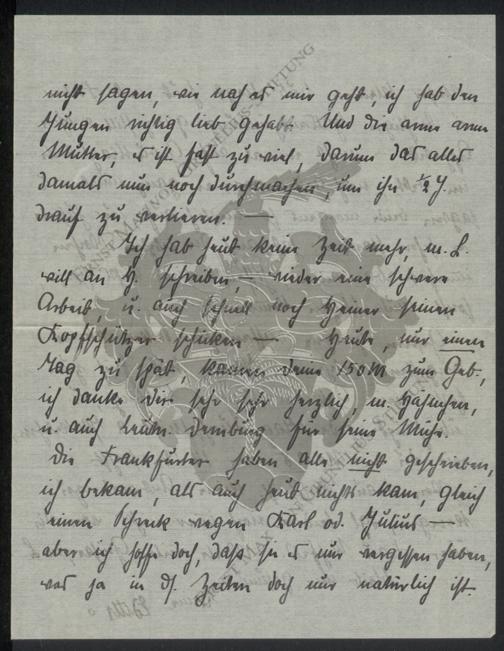 nicht sagen, wie nah es mir geht, ich hab den
Jungen richtig lieb gehabt. Und die arme arme
Mutter, es ist fast zu viel, darum das alles
damals nun noch durchmachen, um ihn ½ J.
drauf zu verlieren. —
Ich hab heut keine Zeit mehr, m. L.
will an H. schreiben, — wieder eine schwere
Arbeit u. auch schnell noch Heiner seinen
Kopfschützer schicken — Heute, nur einen
Tag zu spät, kamen deine 150 M zum Geb.,
ich danke dir sehr sehr herzlich, m. Hähnchen,
u. auch Leutn. Demburg für seine Mühe.
Die Frankfurter haben alle nicht geschrieben,
ich bekam, als auch heut nichts kam, gleich
einen Schreck wegen Karl od. Julius —
aber ich hoffe doch, dass sie es nur vergessen haben,
was ja in ds. Zeiten doch nur natürlich ist.